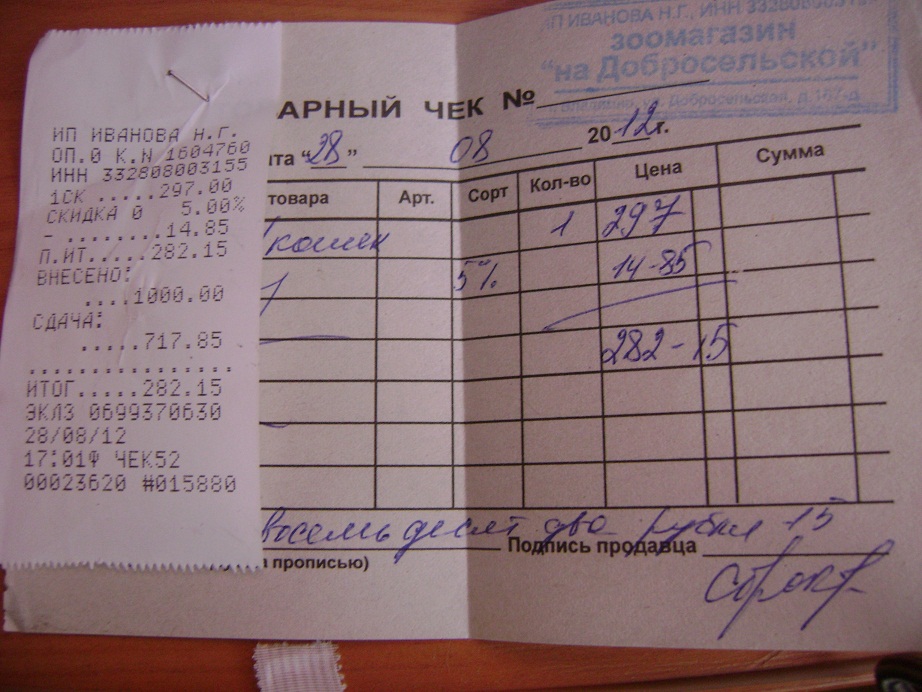 ИП ИВАНОВА Н.Г.
ОП.0 К.N 1604760
ИНН 332808003155
1СК .....297.00
СКИДКА 0 5.00%
- ........14.85
П.ИТ.....282.15
ВНЕСЕНО:
....1000.00
СДАЧА:
.....717.85
................
ИТОГ.....282.15
ЭКЛЗ 0699370630
28/08/12
17:01Ф ЧЕК52
00023620 #015880
ИП ИВАНОВА Н.Г., ИНН
зоомагазин
"на Добросельской"
Добросельская, д.
АРНЫЙ ЧЕК №
та "28" 08 2012г.
товара Арт. Сорт Кол-во Цена Сумма
кошек 1 297
5% 14-85
282-15
восемьдесят два рубля 15
прописью) Подпись продавца